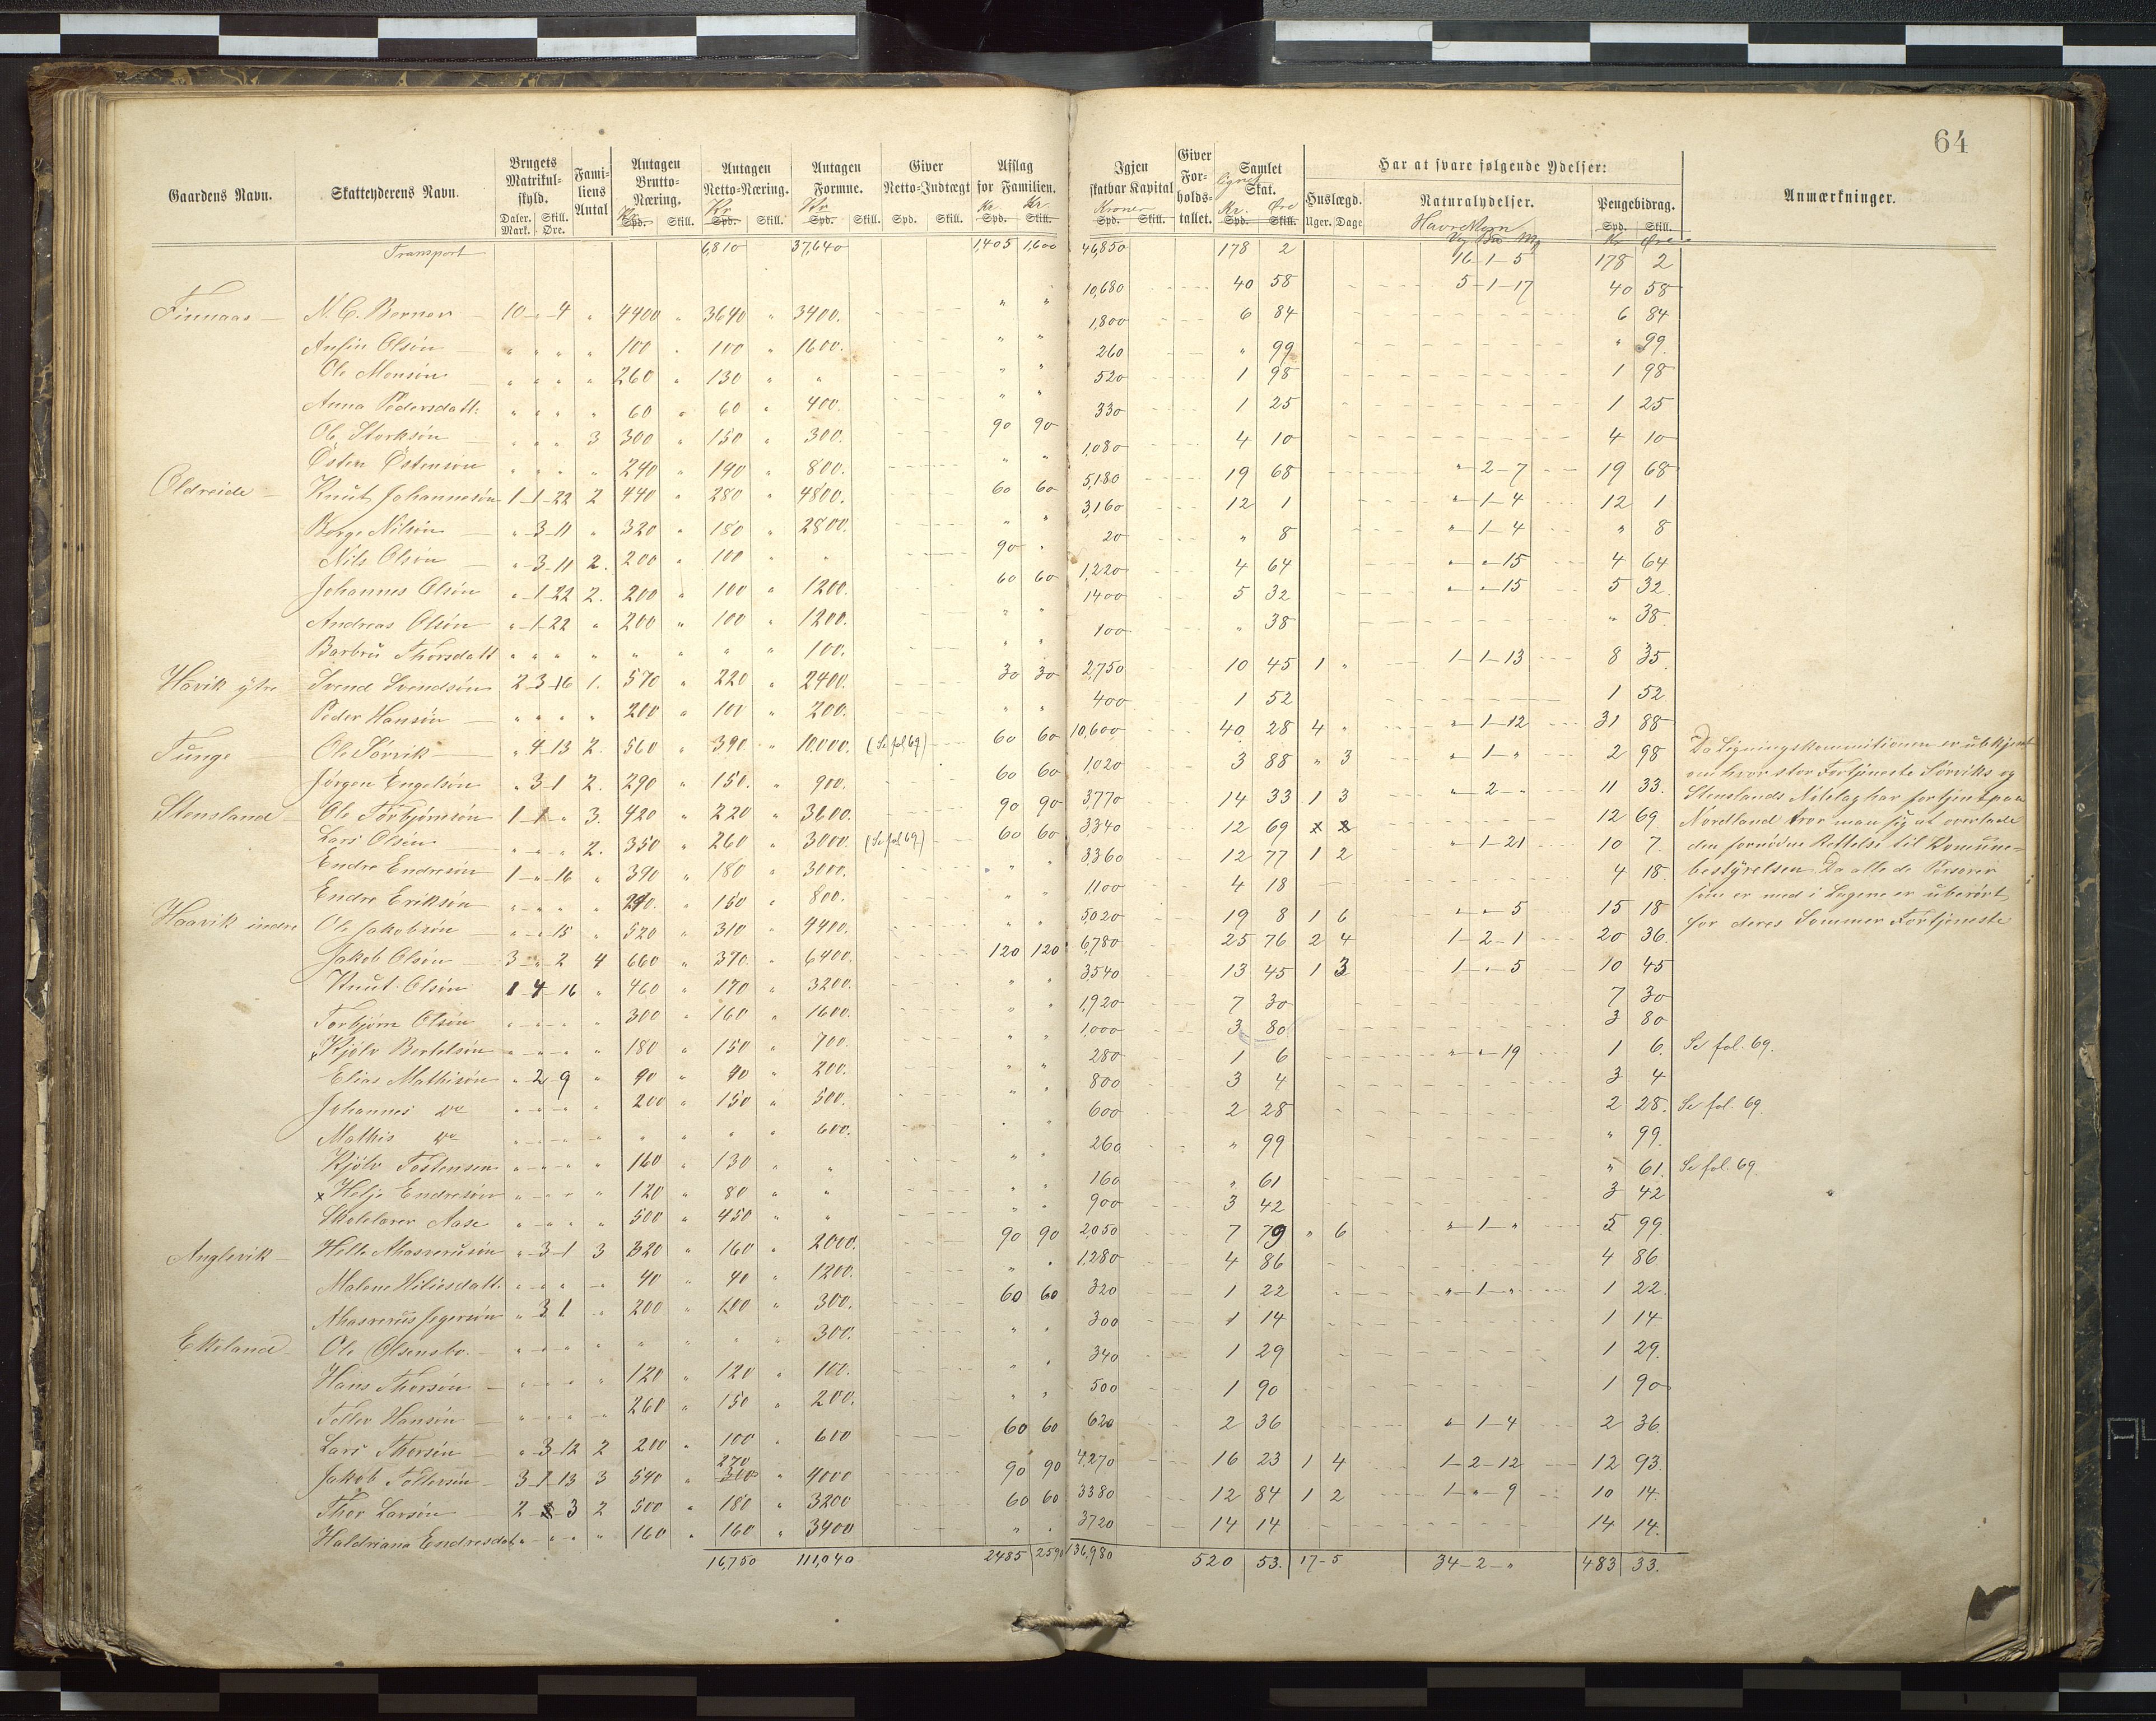 64
Gaardens Navn. Skatteyderens Navn. Brugets Matrikul-skyld. Daler. Mark. Skill. Øre. Fami-liens Antal Antagen Brutto-Næring. Kr Spd. Skill. Antagen Netto-Næring. Kr Spd. Skill. Antagen Formue. Kr Spd. Skill. Giver Netto-Indtægt Spd. Skill. Afslag for Familien. Kr. Spd. Kr. Skill. Igjen skatbar Kapital Kroner Spd. Skill. Giver For-holds-tallet. Samlet lignet Skat. Kr. Spd. Øre Skill. Har at svare følgende Ydelser: Huslægd. Uger. Dage Naturalydelser. Pengebidrag. Spd. Skill. Kr Øre Anmærkninger.
Transport 6,810 37,640 1,405 1,600 46,850 178 2 16-1-5 178 2
Finnaas N. C. Berner 10 " 4 " 4400 " 3640 " 3400. " " 10,680 40 58 5-1-17 40 58
Ansin Olsøn " " " " 100 " 100 " 1600. " " 1,800 6 84 6 84
Ole Monsøn " " " " 260 " 130 " " " " 260 " 99 " 99.
Anna Pedersdatt. " " " " 60 " 60 " 400. " " 520 1 98 1 98
Ole Storksøn " " " 3 300 " 150 " 300. 90 90 330 1 25 1 25
Östen Östensøn " " " " 240 " 190 " 800. " " 1,080 4 10 4 10
Oldreide Knut Johannesøn 1-1-22 2 440 " 280 " 4800. 60 60 5,180 19 68 "-2-7 19 68
Børge Nilsøn "-3-11 " 320 " 180 " 2800. " " 3,160 12 1 "-1-4 12 1
Nils Olsøn "-3-11 2. 200 " 100 " " 90 " 20 " 8 "-1-4 " 8
Johannes Olsøn "-1-22 2. 200 " 100 " 1200. 60 60 1,220 4 64 "-"-15 4 64
Andreas Olsøn "-1-22 " 200 " 100 " 1200. " " 1400 5 32 "-"-15 5 32.
Barbru Thorsdatt " " " " " " " " 100. " " 100 " 38 " 38.
Håvik ytre Svend Svendsøn 2-3-16 1. 570 " 220 " 2400. 30 30 2,750 10 45 1 " 1-1-13 8 35.
Peder Hansøn " " " " 200 " 100 " 200. " " 400 1 52 1 52
Tunge Ole Sørvik " 4-13 2. 560 " 390 " 10,000. (Se fol 69) 60 60 10,600 40 28 4 " "-1-12 31 88
Jørgen Engelsøn " 3-1 2. 290 " 150. " 900. 60 60 1,020 3 88 " 3 "-1-" 2 98
Stensland Ole Torbjørnsøn 1-1-" 3. 420 " 220 " 3600. 90 90 3,770 14 33 1 3 "-2-" 11 33.
Lars Olsøn " " " 2. 350 " 260 " 3000. (Se fol 69) 60 60 3340 12 69 12 69
Endre Endresøn 1-"-16 " 390 " 180 " 3000. " " 3360 12 77 1 2 "-1-21 10 7.
Endre Eriksøn " " " " 290. " 150 " 800. " " 1,100 4 18 4 18.
Haavik indre Ole Jakobsøn "-"-15 " 520 " 310 " 4400. " " 5,020 19 8 1 6 "-"-5 15 18
Jakob Olsøn 3-"-2 4 660 " 370. " 6400. 120 120 6,780 25 76 2 4 1-2-1 20 36.
Knut Olsøn 1-4-16 " 460 " 170 " 3200. " " 3540 13 45 1 3 1-"-5 10 45
Torbjørn Olsøn " " " " 300 " 160 " 1600. " " 1,920 7 30 7 30
x Kjölv Bertelsøn " " " " 180 " 150 " 700. " " 1,000 3 80 3 80
Elias Mathisøn " 2 9 " 90 " 40 " 200. " " 280 1 6 "-"-19 1 6. Se fol. 69.
Johannes do " " " " 200 " 150 " 500. " " 800 3 4 3 4
Mathis do " " " " " " " " 600. " " 600 2 28 2 28. Se fol. 69.
Kjölv Tostensen " " " " 160 " 130 " " " " 260 " 99 " 99.
x Helje Endresøn " " " " 120 " 80 " " " " 160 " 61 " 61. Se fol. 69
Skolelærer Aase " " " " 500 " 450 " " " " 900 3 42 3 42
Anglevik Helle Ahasverusøn "-3-1 3 320 " 160 " 2000. 90 90 2,050 7 79 " 6 "-1-" 5 99.
Malene Hiliesdatt. " " " " 40 " 40 " 1200. " " 1,280 4 86 4 86
Ahasverus Jegersøn " 3 1 " 200 " 100 " 300. 60 60 320 1 22 "-1-" 1 22.
Ekeland Ole Olsensbo. " " " " " " " " 300. " " 300 1 14 1 14
Hans Thorsøn " " " " 120 " 120 " 100. " " 340 1 29 1 29.
Toller Hansøn " " " " 260 " 150 " 200. " " 500 1 90 1 90
Lars Thorsøn "-3-12 2 200 " 100 " 600 60 60 620 2 36 "-1-4 2 36.
Jakob Tollersøn 3-1-13 3 540 " 270 300 " 4000 90 90 4,270 16 23 1 4 1-2-12 12 93.
Thor Larsøn 2 3 2 500 " 180 " 3200 60 60 3380 12 84 1 2 1-"-9 10 14.
Haldriana Endresdat. " " " " 160 " 160 " 3400 " " 3720 14 14 14 14.
16,750 111,040 2485 2590 136,980 520 53. 17-5 34-2-" 483 33.
Da Ligningskommitionen er ubekjent
om hvor stor Fortjeneste Sørviks og
Stenslands Notelag har fortjent paa
Nordland tror man sig at overlade
den fornødne Rettelse til Komune-
bestyrelsen. Da alle de Personer
som er med i Lagene er uberørt
for deres Sommer Fortjeneste